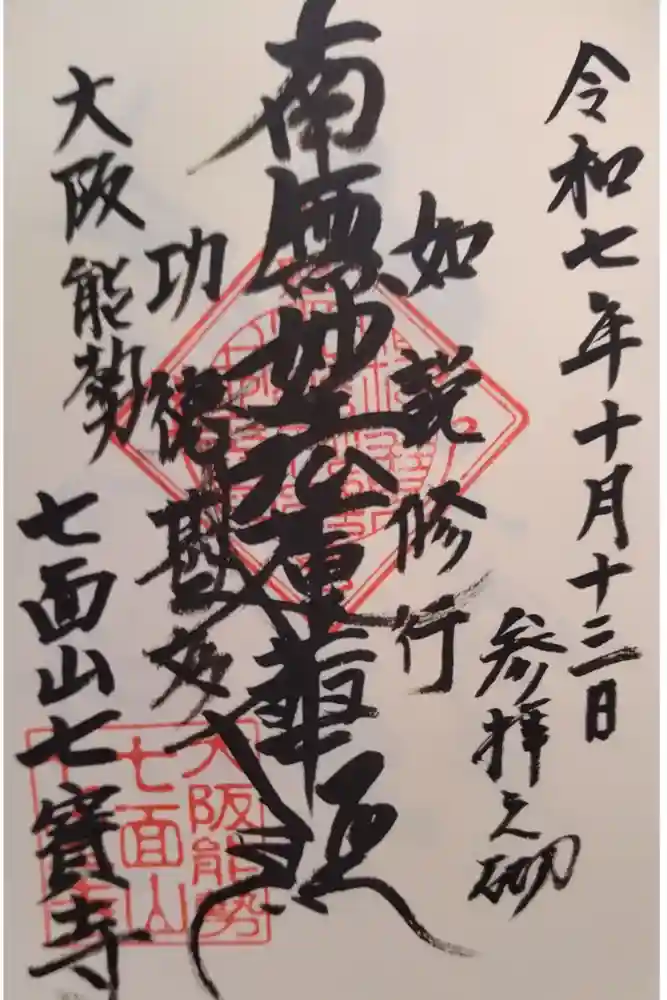 令和七年十月十三日
参拝之砌
如説修行
南無妙法蓮華経
功徳甚多
大阪能勢
七面山七寳寺
大阪能勢
七面山